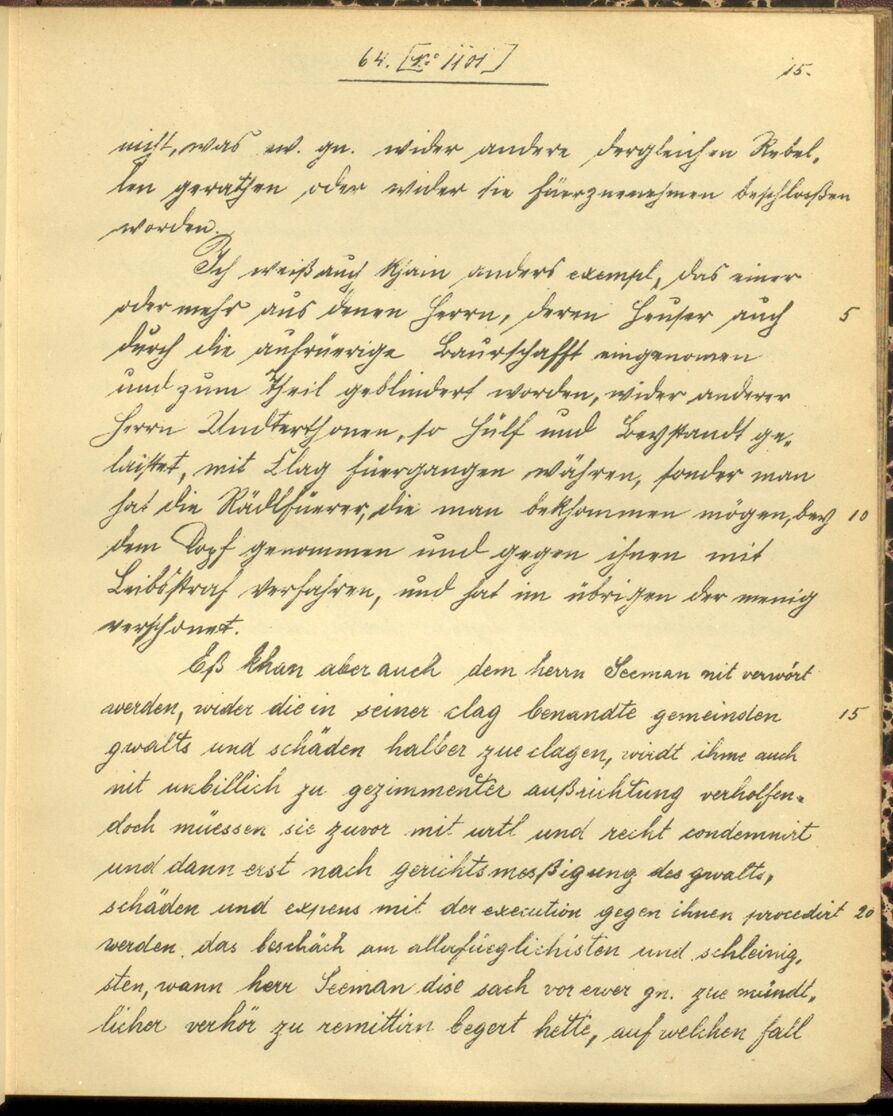 64. [N: 1101]
15.
nicht, was ew. gn. wider andere dergleichen Rebel-
len gerathen oder wider sie füerzunemhmen beschlossßen
worden.
Ich weiß auch khain anders exempl, das einer
oder mehr aus denen Herrn, deren Heuser auch 5
durch die aufrüerige Baurschafft eingenomen
und zum Theil geblindert worden, wider anderer
Herrn Undterthonen, so Hülf und Beystandt ge-
laistet, mit Clag füergangen währen, sonder man
hat die Rädlfüerer, die man bekhommen mögen, bey 10
dem Kopf genommen und gegen ihnen mit
Leibsstraf verfahren, und hat im übrigen der menig
verschonet.
Eß khan aber auch dem herrn Seeman nit verwört
werden, wider die in seiner clag benandte gemeinden 15
gwalts und schäden halber zue clagen, wirdt ihme auch
nit unbillich zu gezimmenter außrichtung verholfen.
doch müessen sie zuvor mit urtl und recht condemnirt
und dann erst nach gerichtsmeßigung des gwalts,
schäden und expens mit der execution gegen ihnen procedirt 20
werden. das beschäch am allerfüeglichisten und schleinig-
sten, wann herr Seeman dise sach vor ewer gn. zue mündt-
licher verhör zu remittirn begert hette, auf welchen fall